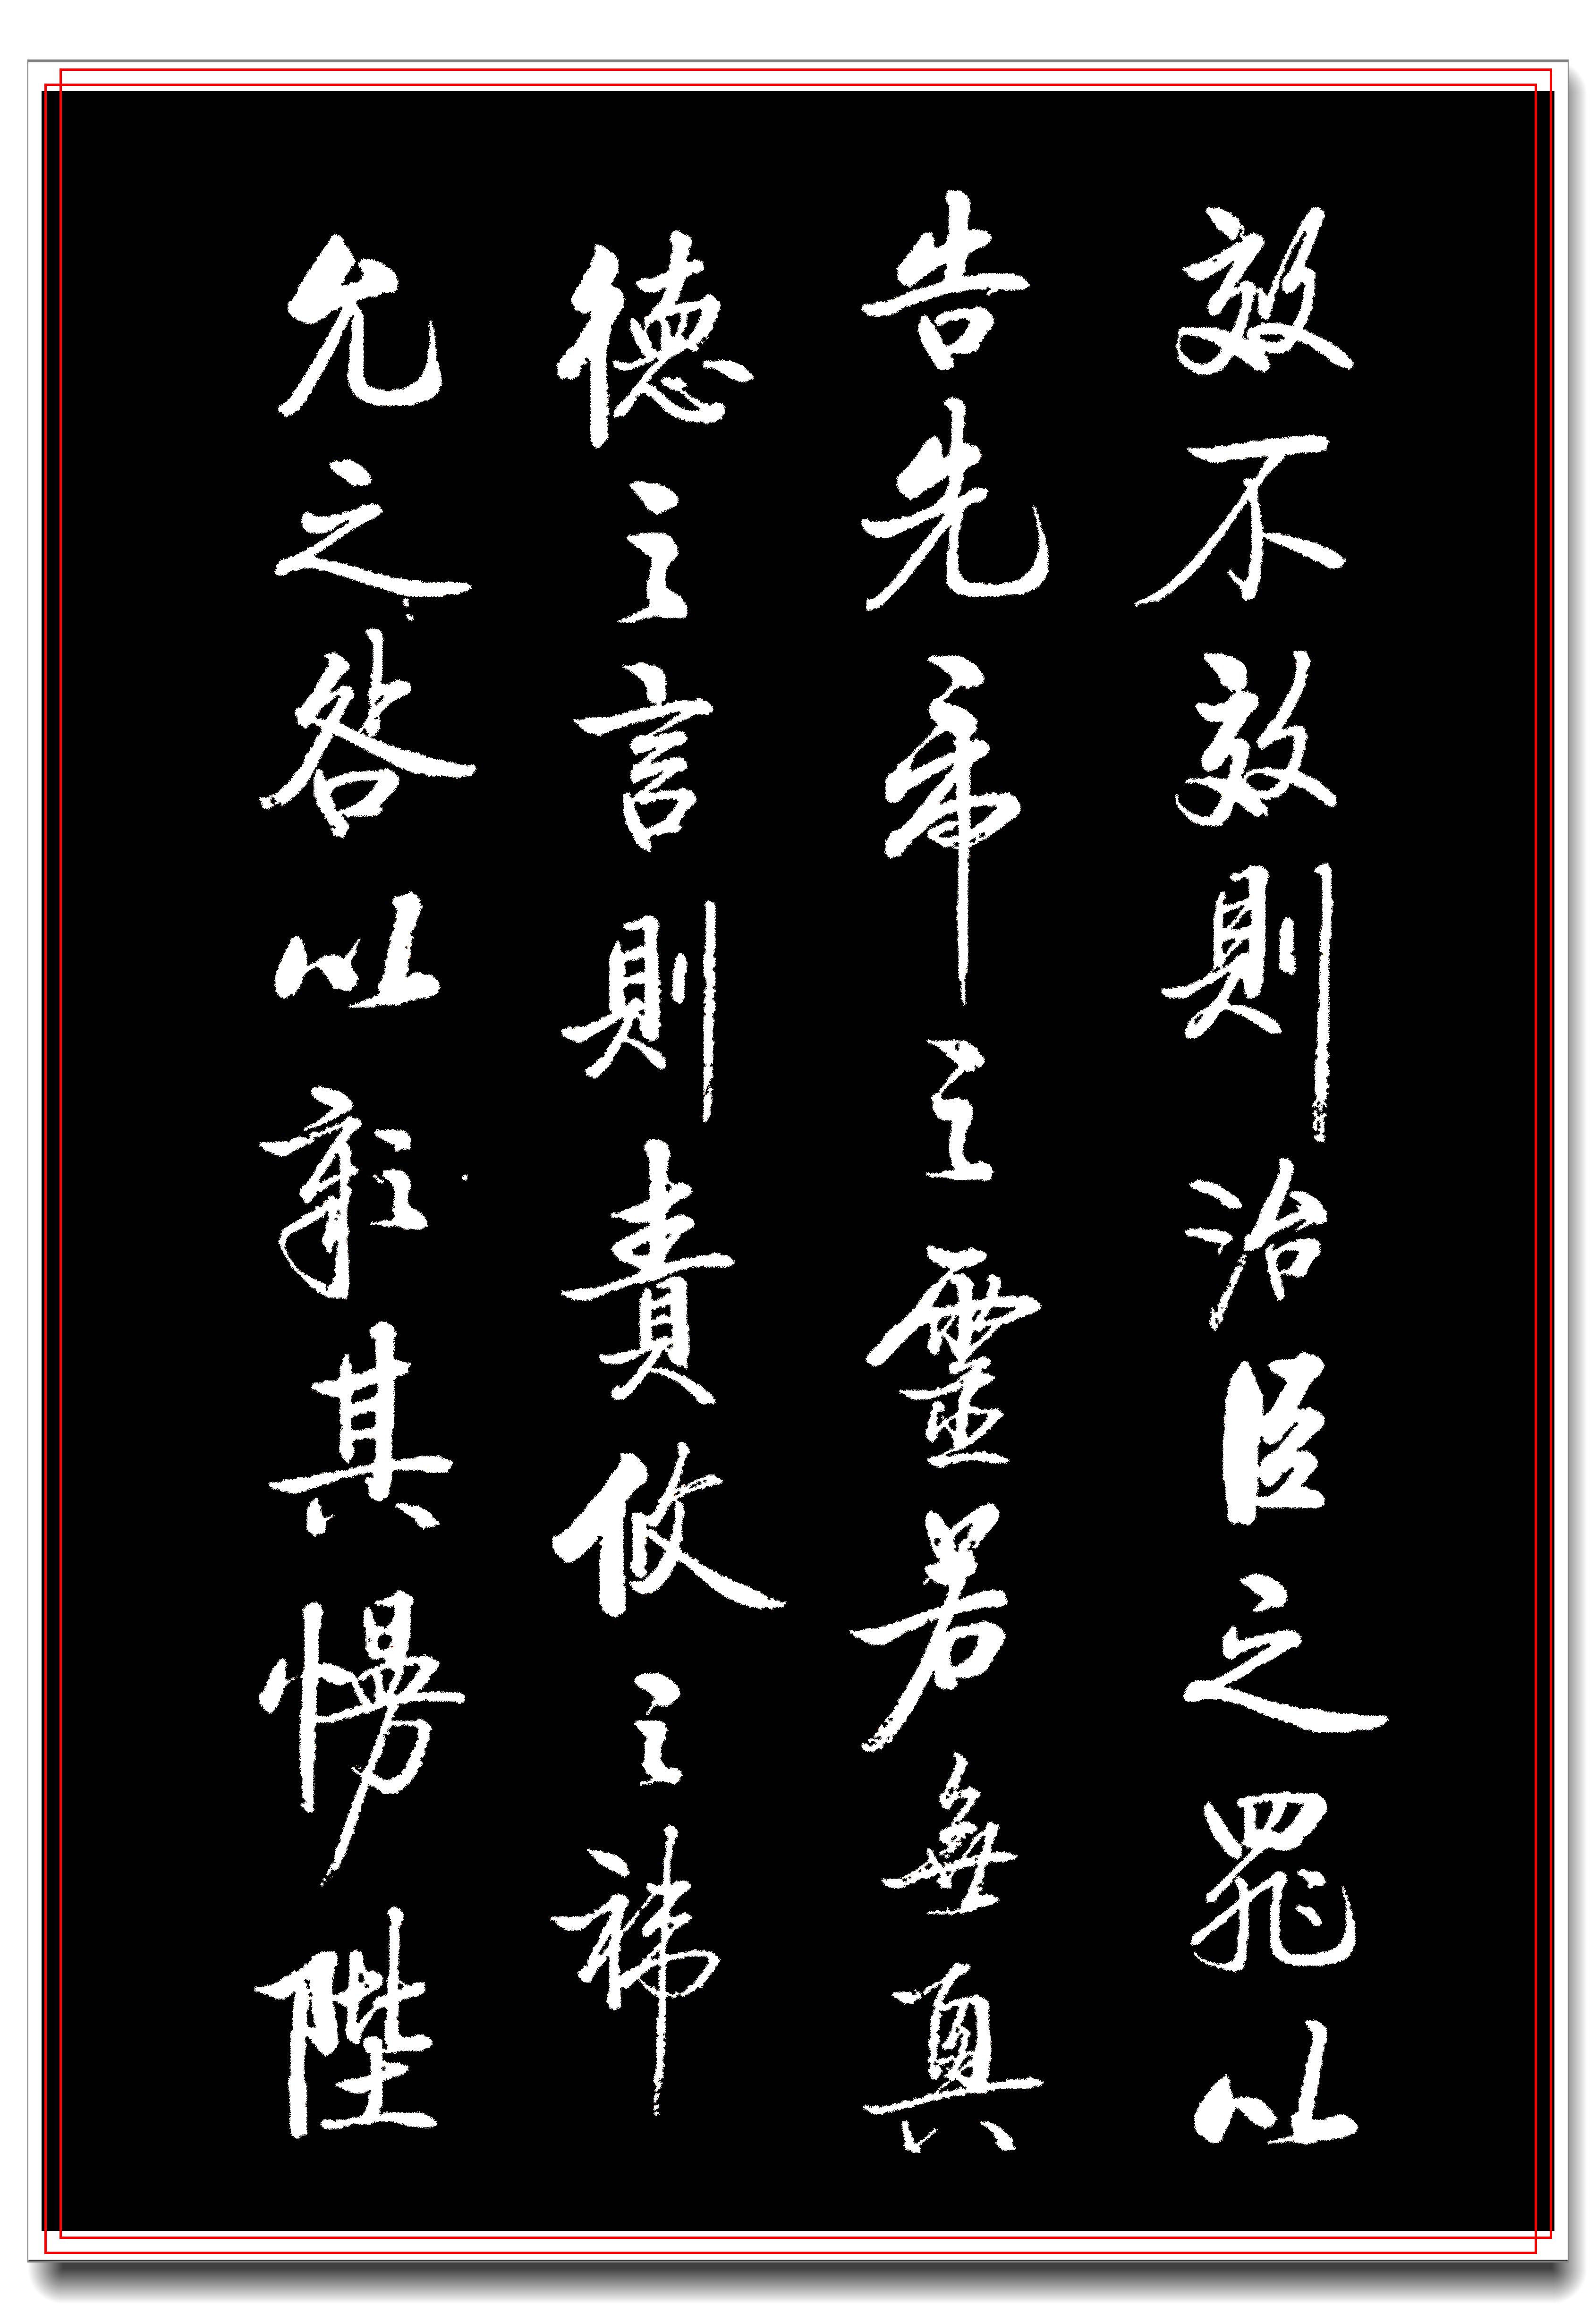 效不效則治臣之罪以
告先帝之靈若無興
德之言則責攸之禕
允之咎以彰其慢陛